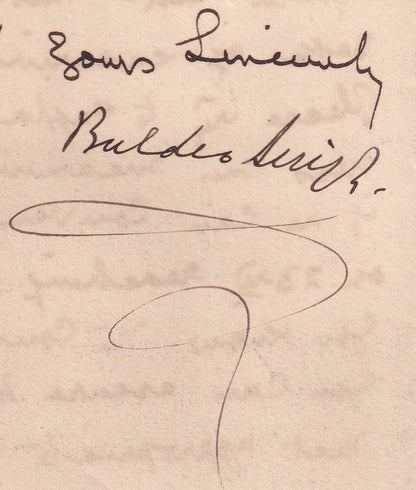 Yours Sincerely
Baldev Singh.